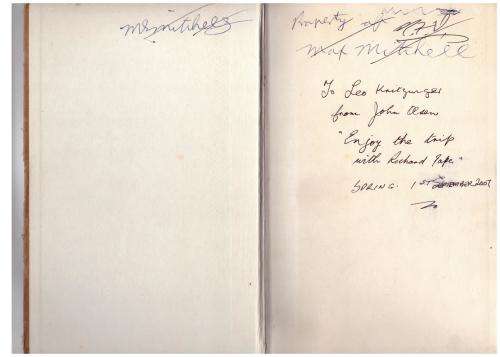 Mrs Mitchell
Property of
Max Mitchell
To Leo Kritzinger
from John Olsen
"Enjoy the trip
with Richard Pape"
SPRING. 1ST SEPTEMBER 2007